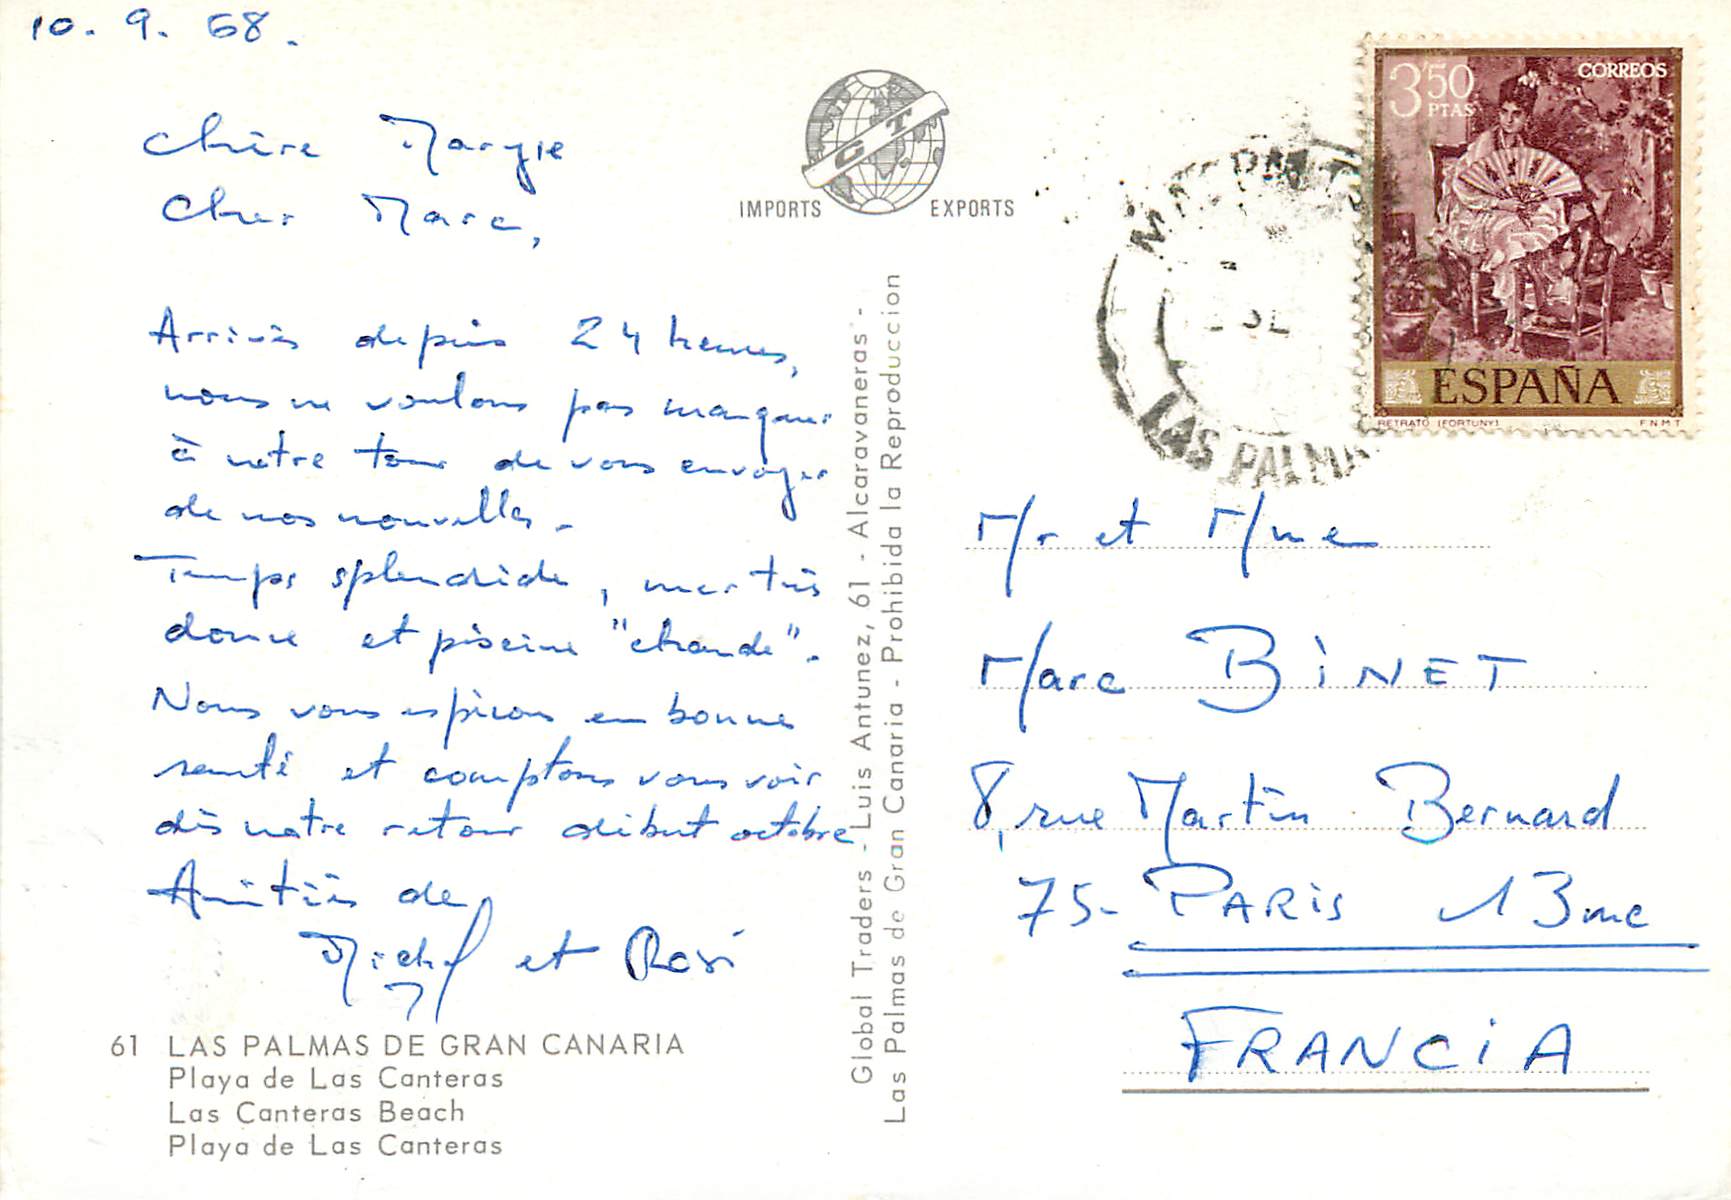 10. 9. 68.
Chère Margie
Cher Marc,
Arrivés depuis 24 heures,
nous ne voulons pas manquer
à notre tour de vous envoyer
de nos nouvelles.
Temps splendide, mer très
douce et piscine "chaude".
Nous vous espérons en bonne
santé et comptons vous voir
dès notre retour début octobre
Amitiés de
Michel et Rosi
61 LAS PALMAS DE GRAN CANARIA
Playa de Las Canteras
Las Canteras Beach
Playa de Las Canteras
G T
IMPORTS EXPORTS
Global Traders - Luis Antunez, 61 - Alcaravaneras -
Las Palmas de Gran Canaria - Prohibida la Reproduccion
LAS PALMA
3'50 PTAS
CORREOS
ESPAÑA
RETRATO (FORTUNY) F.N.M.T
Mr et Mme
Marc BINET
8, rue Martin Bernard
75- PARIS 13me
FRANCIA